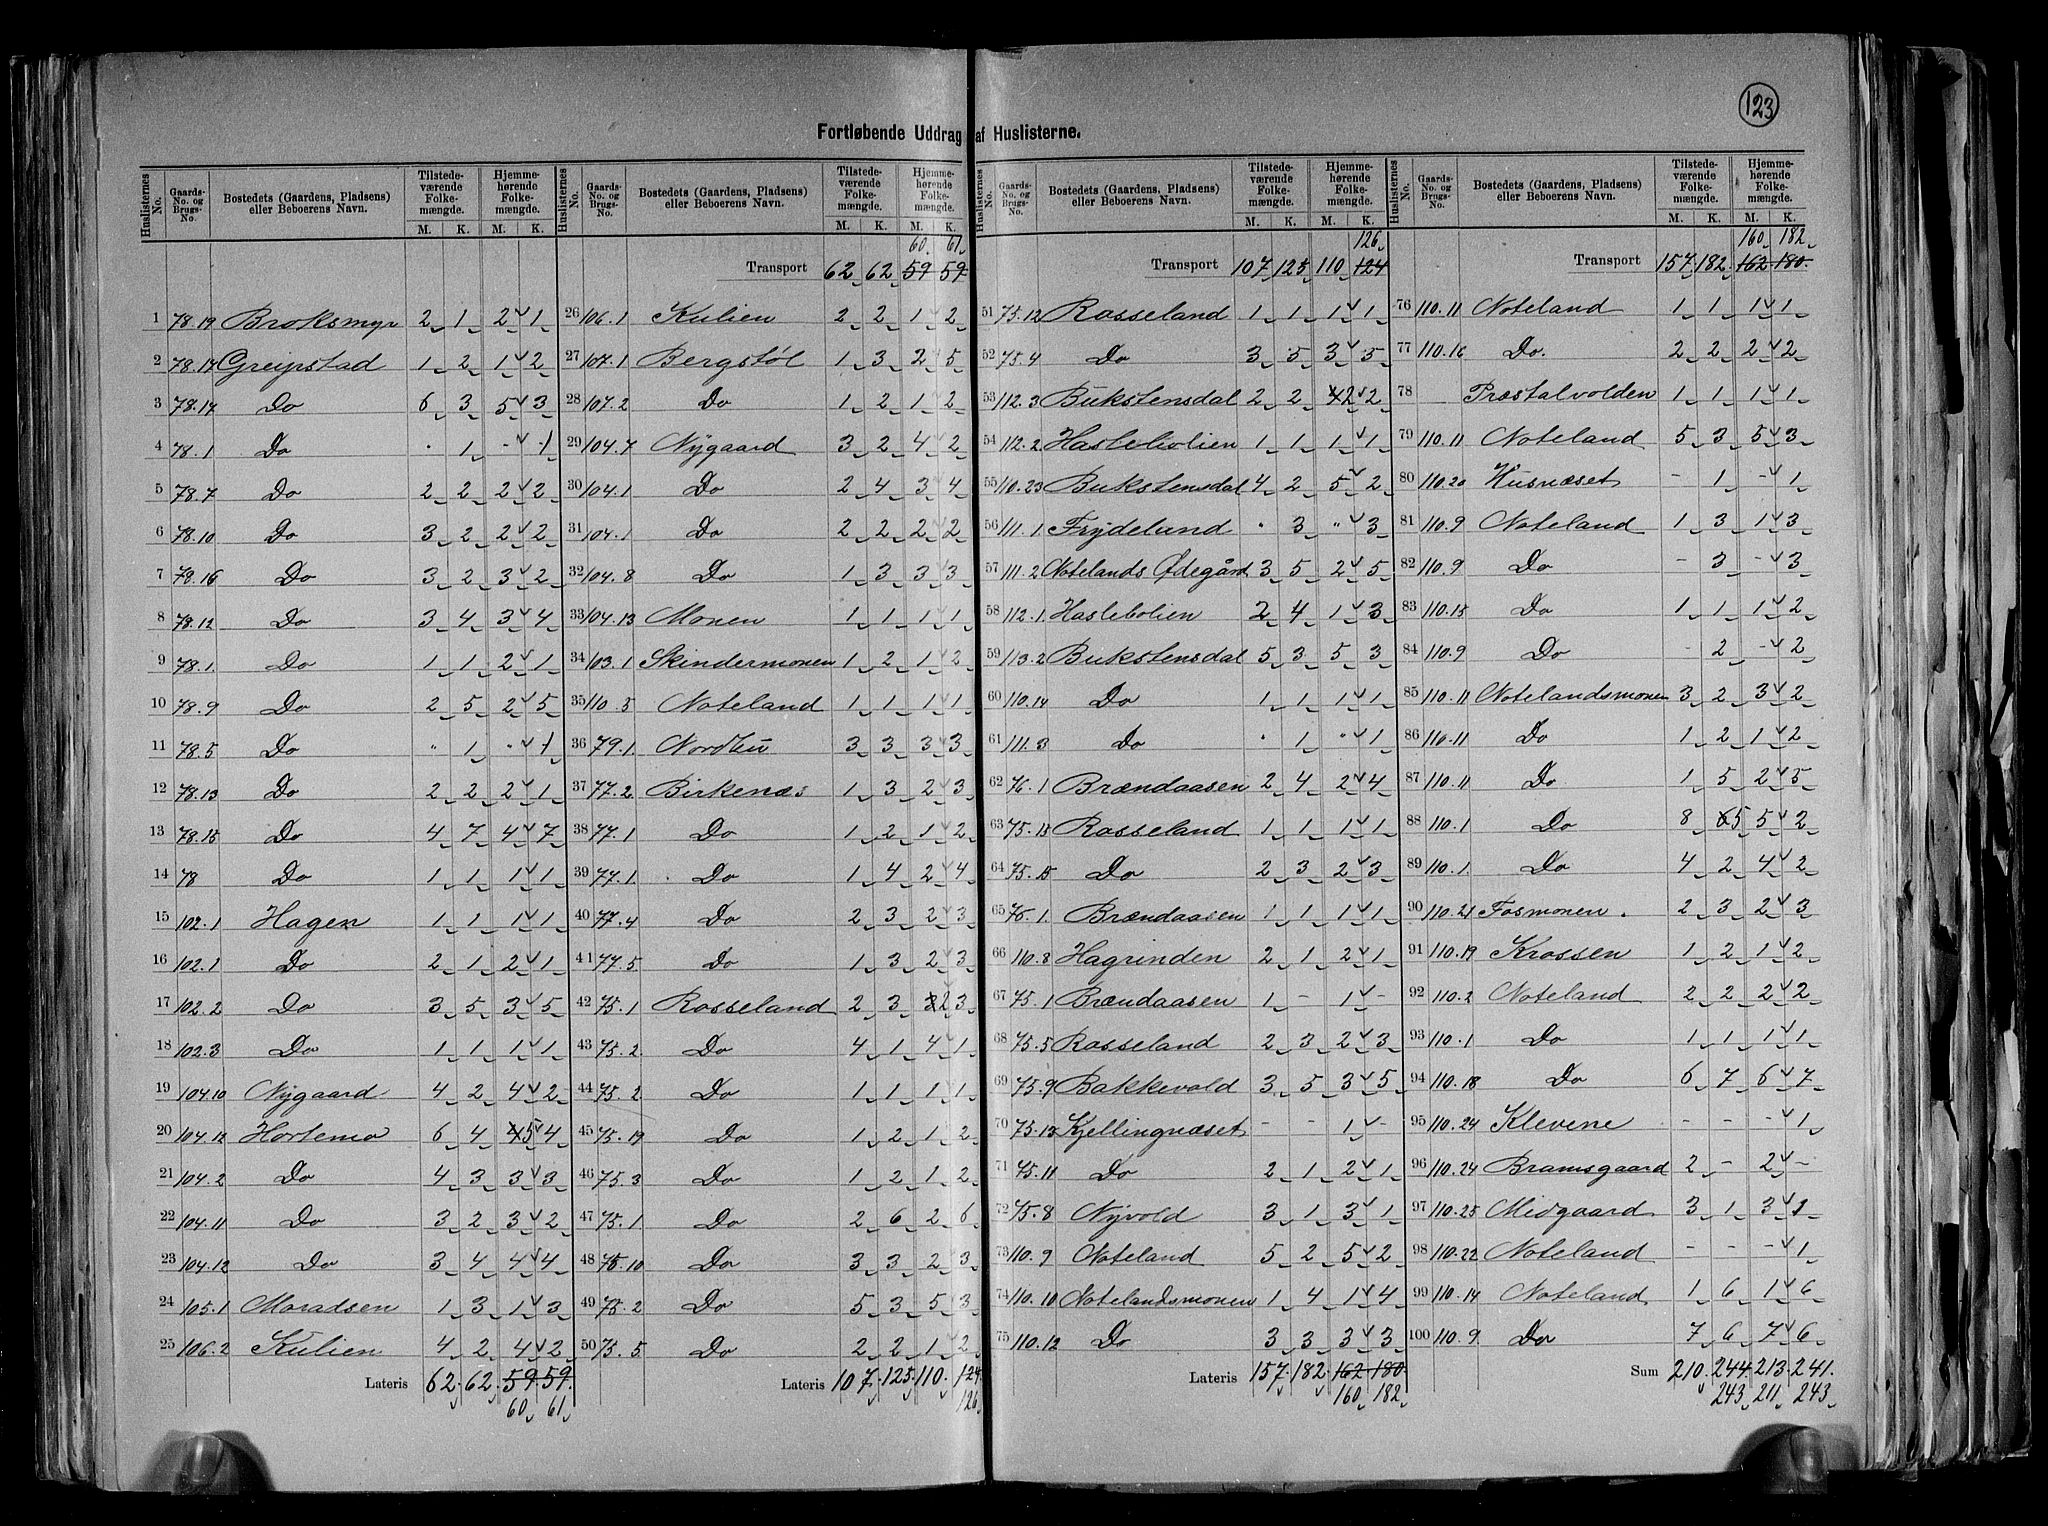 123
Fortløbende Uddrag af Huslisterne.
Huslisternes No. | Gaards-No. og Brugs-No. | Bostedets (Gaardens, Pladsens) eller Beboerens Navn. | Tilstedeværende Folkemængde. M. K. | Hjemmehørende Folkemængde. M. K.
1 78.19 Broksmyr 2 1 2 1
2 78.14 Greipstad 1 2 1 2
3 78.14 Do 6 3 5 3
4 78.1 Do . 1 - 1
5 78.7 Do 2 2 2 2
6 78.10 Do 3 2 2 2
7 78.16 Do 3 2 3 2
8 78.12 Do 3 4 3 4
9 78.1 Do 1 1 2 1
10 78.9 Do 2 5 2 5
11 78.5 Do " 1 " 1
12 78.13 Do 2 2 2 1
13 78.15 Do 4 7 4 7
14 78 Do 1 1 1 1
15 102.1 Hagen 1 1 1 1
16 102.1 Do 2 1 2 1
17 102.2 Do 3 5 3 5
18 102.3 Do 1 1 1 1
19 104.10 Nygaard 4 2 4 2
20 104.12 Hortemo 6 4 5 4
21 104.2 Do 4 3 3 3
22 104.11 Do 3 2 3 2
23 104.12 Do 3 4 4 4
24 105.1 Moradsen 1 3 1 3
25 106.2 Kulien 4 2 4 2
Lateris 62 62 59 59
60 61
60 61
Transport 62 62 59 59
26 106.1 Kulien 2 2 1 2
27 107.1 Bergstøl 1 3 2 5
28 107.2 Do 1 2 1 2
29 104.7 Nygaard 3 2 4 2
30 104.1 Do 2 4 3 4
31 104.1 Do 2 2 2 2
32 104.8 Do 1 3 3 3
33 104.13 Monen 1 1 1 1
34 103.1 Skindermonen 1 2 1 2
35 110.5 Noteland 1 1 1 1
36 79.1 Nordbu 3 3 3 3
37 77.2 Birkenæs 1 3 2 3
38 77.1 Do 1 2 1 2
39 77.1 Do 1 4 2 4
40 77.4 Do 2 3 2 3
41 77.5 Do 1 3 2 3
42 75.1 Rosseland 2 3 2 3
43 75.2 Do 4 1 4 1
44 75.2 Do 1 1 1 1
45 75.19 Do 1 2 1 2
46 75.3 Do 1 2 1 2
47 75.1 Do 2 6 2 6
48 75.10 Do 3 3 2 3
49 75.2 Do 5 3 5 3
50 75.5 Do 2 2 1 2
Lateris 107 125 110 124
126
126
Transport 107 125 110 124
51 75.12 Rosseland 1 1 1 1
52 75.4 Do 3 5 3 5
53 112.3 Bukstensdal 2 2 2 2
54 112.2 Haslebolien 1 1 1 1
55 110.23 Bukstensdal 4 2 5 2
56 111.1 Frydeland " 3 " 3
57 111.2 Notelands Ødegård 3 5 2 5
58 112.1 Haslebolien 2 4 1 3
59 113.2 Bukstensdal 5 3 5 3
60 110.14 Do 1 1 1 1
61 111.3 Do " 1 " 1
62 76.1 Brændaasen 2 4 2 4
63 75.13 Rosseland 1 1 1 1
64 75.15 Do 2 3 2 3
65 76.1 Brændaasen 1 1 1 1
66 110.8 Hagrinden 2 1 2 1
67 75.1 Brændaasen 1 - 1 -
68 75.5 Rosseland 2 3 2 3
69 75.9 Bakkevold 3 5 3 5
70 75.13 Kjellingnæset - - 1 -
71 75.11 Do 2 1 2 1
72 75.8 Nyvold 3 1 3 1
73 110.9 Noteland 5 2 5 2
74 110.10 Notelandsmonen 1 4 1 4
75 110.12 Do 3 3 3 3
Lateris 157 182 162 180
160 182
160 182
Transport 157 182 162 180
76 110.11 Noteland 1 1 1 1
77 110.16 Do. 2 2 2 2
78 Præstalvolden 1 1 1 1
79 110.11 Noteland 5 3 5 3
80 110.20 Husnæset - 1 - 1
81 110.9 Noteland 1 3 1 3
82 110.9 Do - 3 - 3
83 110.15 Do 1 1 1 2
84 110.9 Do - 2 - 2
85 110.11 Notelandsmonen 3 2 3 2
86 110.11 Do 1 2 1 2
87 110.11 Do 1 5 2 5
88 110.1 Do 8 5 5 2
89 110.1 Do 4 2 4 2
90 110.21 Fosmonen. 2 3 2 3
91 110.19 Krossen 1 2 1 2
92 110.2 Noteland 2 2 2 2
93 110.1 Do 1 1 1 1
94 110.18 Do 6 7 6 7
95 110.24 Klevene - - - 1
96 110.24 Bramsgaard 2 - 2 -
97 110.25 Midgaard 3 1 3 1
98 110.22 Noteland - - - 1
99 110.14 Noteland 1 6 1 6
100 110.9 Do 7 6 7 6
Sum 210 244 213 241
243 211 243